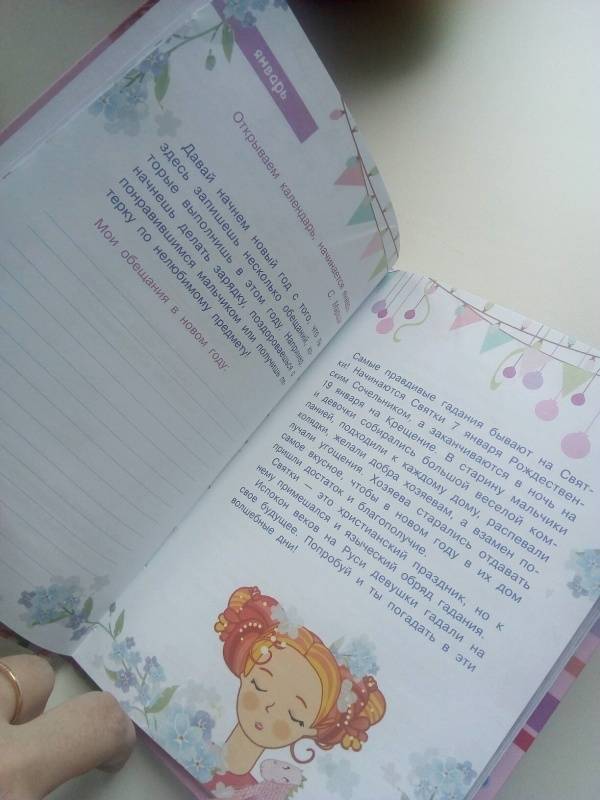 январь
Открываем календарь, начинается январь.
С.
Давай начнем новый год с того, что ты
здесь запишешь несколько обещаний, ко-
торые выполнишь в этом году. Например,
начнешь делать зарядку, поздороваешься с
понравившимся мальчиком или получишь пя-
терку по нелюбимому предмету!
Мои обещания в новом году:
Самые правдивые гадания бывают на Свят-
ки! Начинаются Святки 7 января Рождествен-
ским Сочельником, а заканчиваются в ночь на
19 января на Крещение. В старину мальчики
и девочки собирались большой веселой ком-
панией, подходили к каждому дому, распевали
колядки, желали добра хозяевам, а взамен по-
лучали угощения. Хозяева старались отдавать
самое вкусное, чтобы в новом году в их дом
пришли достаток и благополучие.
Святки — это христианский праздник, но к
нему примешался и языческий обряд гадания.
Испокон веков на Руси девушки гадали на
свое будущее. Попробуй и ты погадать в эти
волшебные дни!